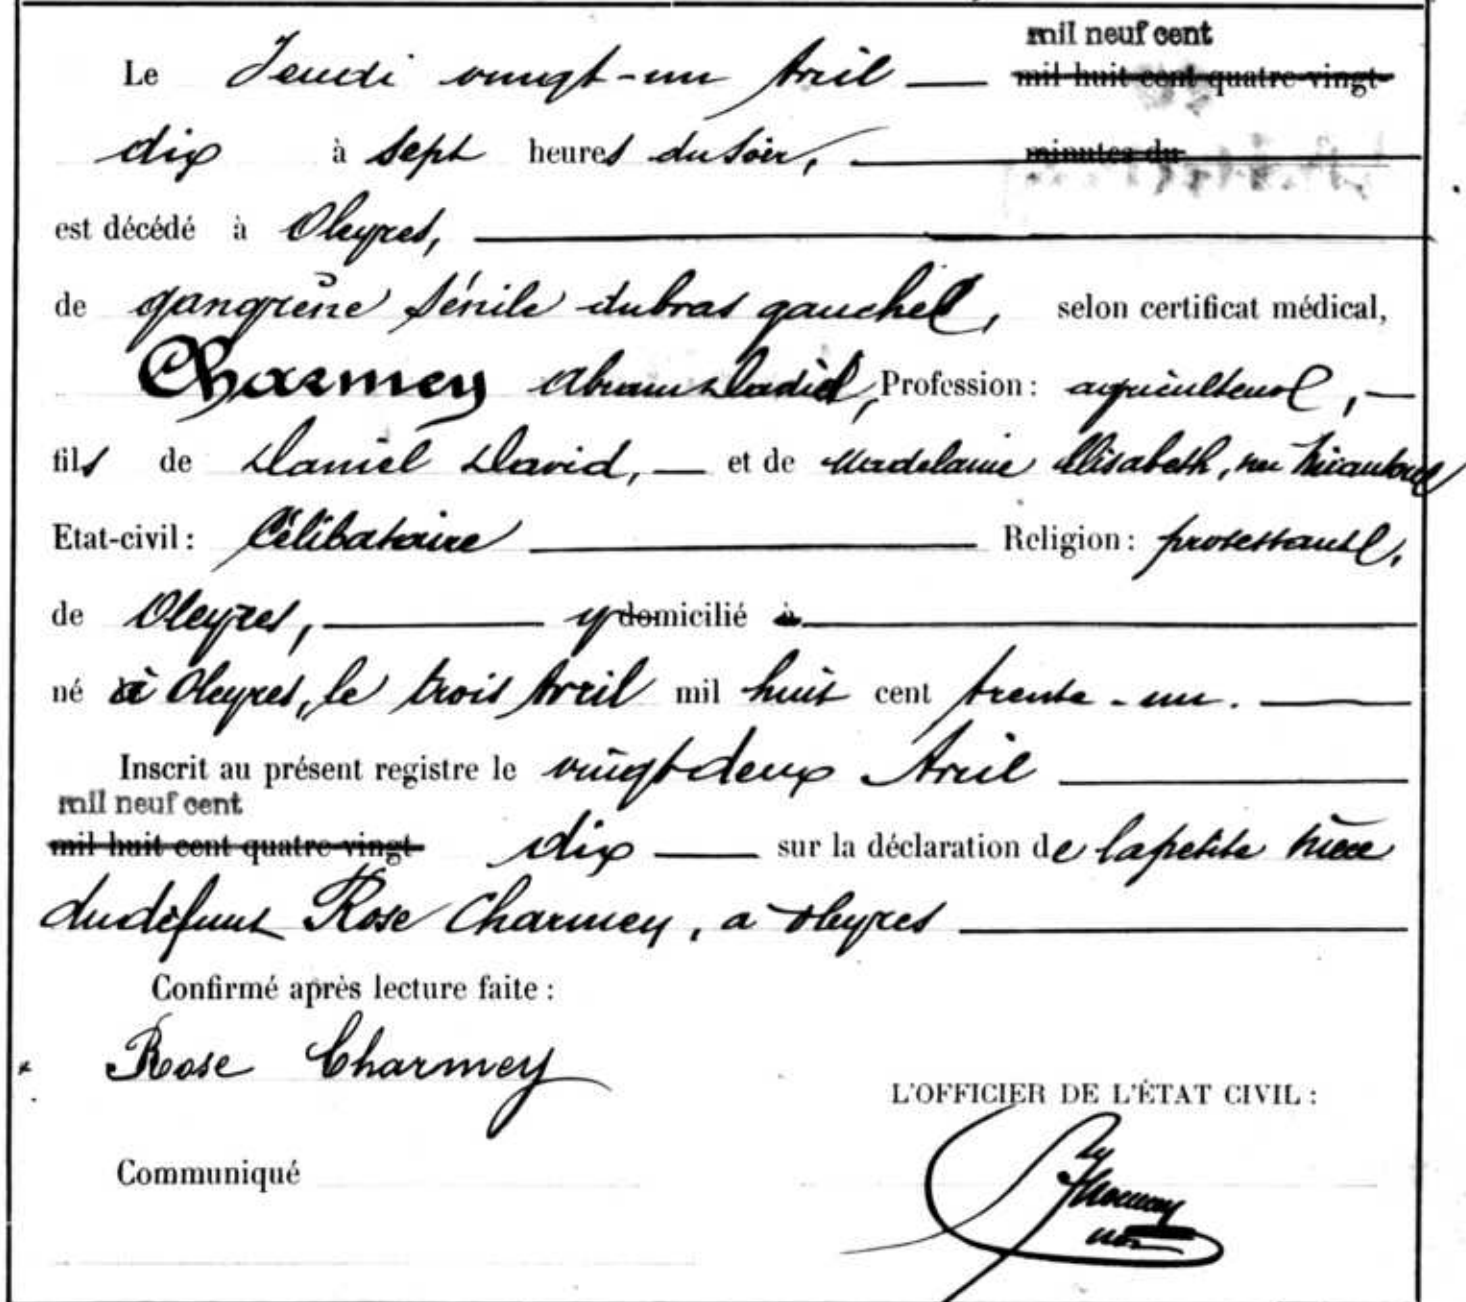 mil neuf cent
Le Jeudi vingt-un Avril — mil huit cent quatre-vingt-
dix à sept heures du soir, — minutes du
est décédé à Oleyres,
de gangrène sénile du bras gauche, selon certificat médical,
Charmey Abram David, Profession: agriculteur, —
fils de Daniel David, — et de Madelaine Elisabeth, née
Etat-civil: Célibataire — Religion: protestante,
de Oleyres, — y domicilié à
né à Oleyres, le trois Avril mil huit cent trente-un. —
Inscrit au présent registre le vingt deux Avril —
mil neuf cent
mil huit cent quatre-vingt dix — sur la déclaration de la petite nièce
du défunt Rose Charmey, à Oleyres —
Confirmé après lecture faite:
Rose Charmey
L'OFFICIER DE L'ÉTAT CIVIL:
Communiqué